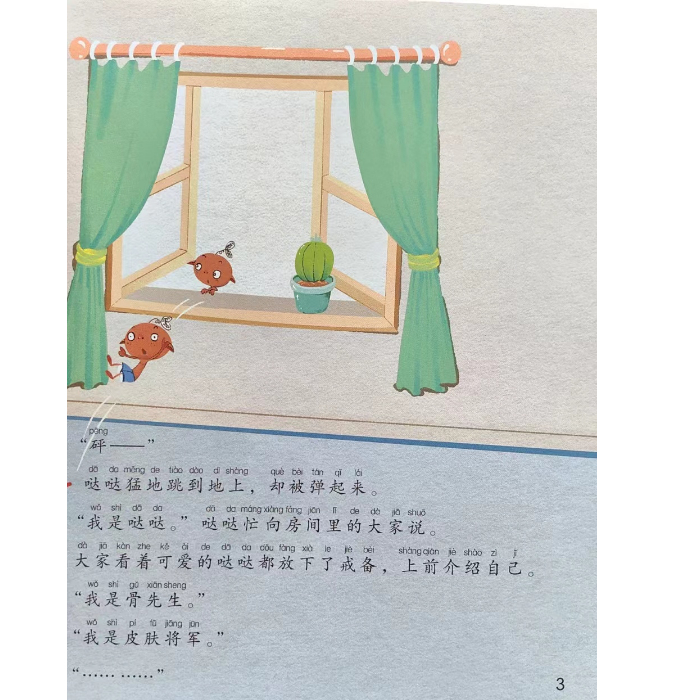 pēng
“砰——”
dā da měng de tiào dào dì shàng què bèi tán qǐ lái
哒哒猛地跳到地上，却被弹起来。
wǒ shì dā da dā da máng xiàng fáng jiān lǐ de dà jiā shuō
“我是哒哒。”哒哒忙向房间里的大家说。
dà jiā kàn zhe kě ài de dā da dōu fàng xià le jiè bèi shàng qián jiè shào zì jǐ
大家看着可爱的哒哒都放下了戒备，上前介绍自己。
wǒ shì gǔ xiān sheng
“我是骨先生。”
wǒ shì pí fū jiāng jūn
“我是皮肤将军。”
“…… ……”
3